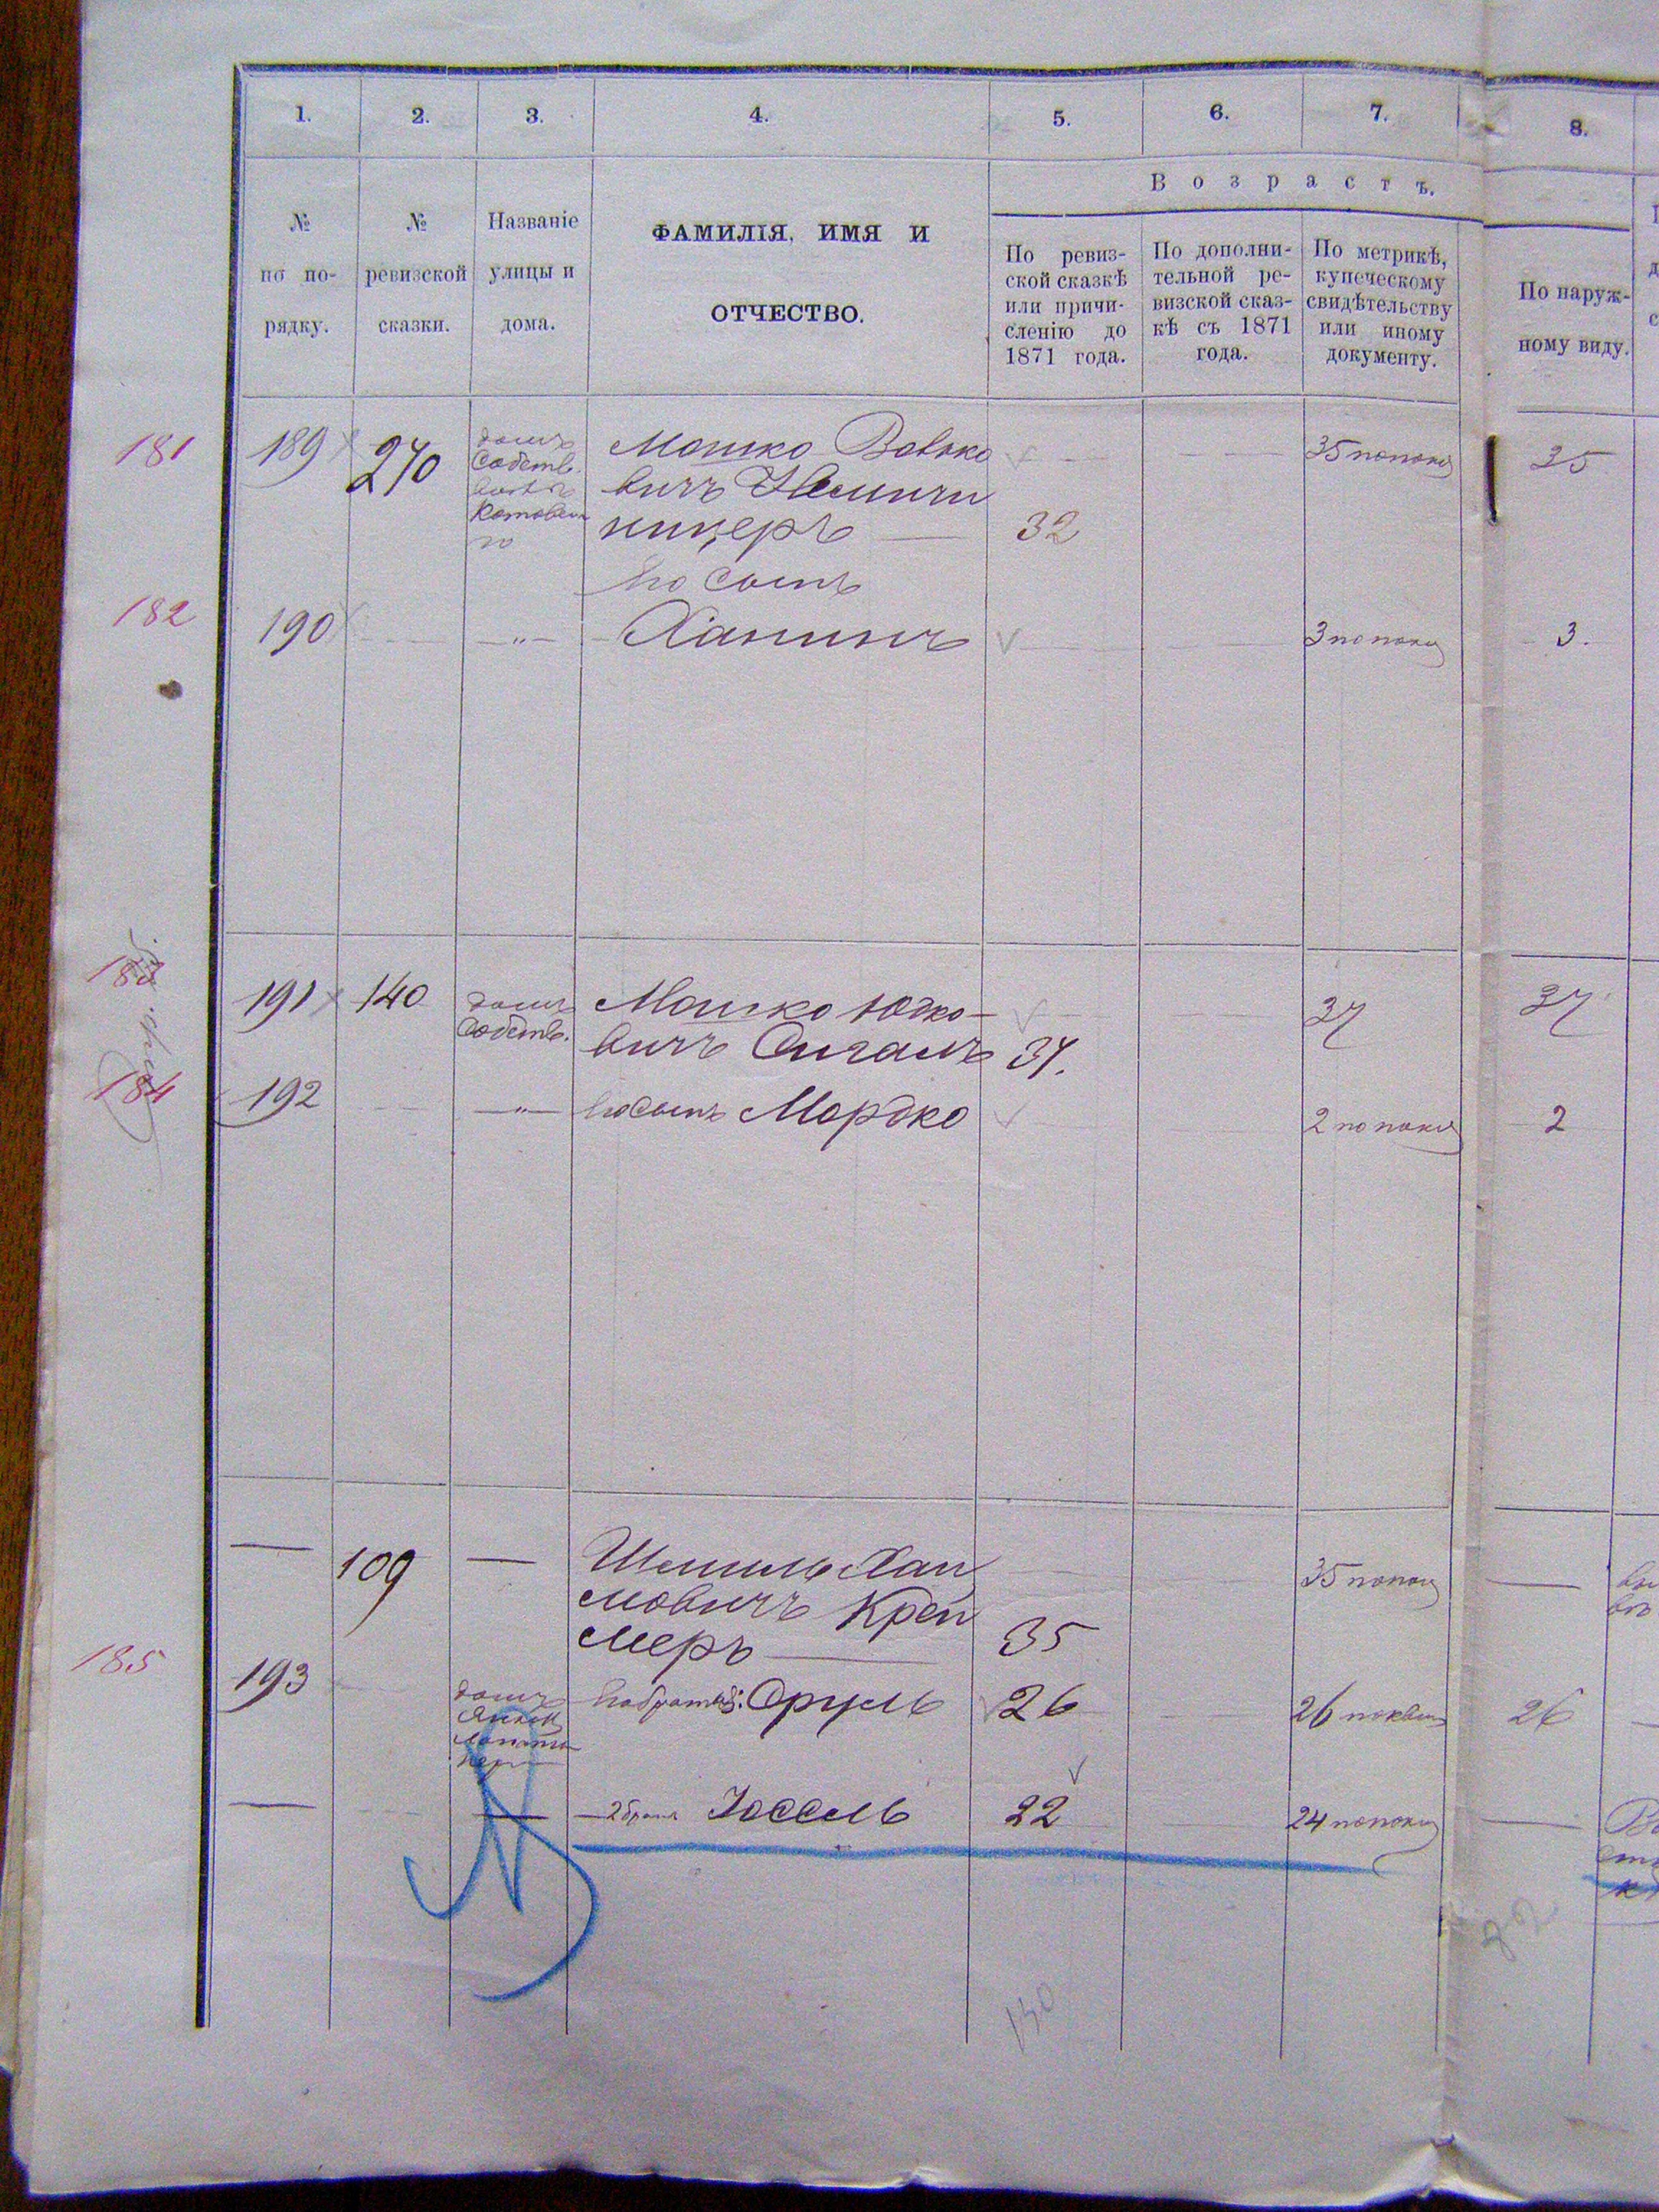 1.
2.
3.
4.
5.
6.
7.
8.
Возрастъ.
№
по по-
рядку.
№
ревизской
сказки.
Названіе
улицы и
дома.
ФАМИЛІЯ, ИМЯ И
ОТЧЕСТВО.
По ревиз-
ской сказкѣ
или причи-
сленію до
1871 года.
По дополни-
тельной ре-
визской сказ-
кѣ съ 1871
года.
По метрикѣ,
купеческому
свидѣтельству
или иному
документу.
По наруж-
ному виду.
181
189
270
домъ
Собств.
Мошко Вовко
вичъ
ницеръ
32
35 по показ
35
Его Сынъ
182
190
"
Ханинъ
3 по показ
3.
183
191
140
домъ
Собств.
Мошко Юдко-
вичъ Сигалъ
34.
37
37
184
192
"
Его Сынъ Мордко
2 по показ
2
109
Шмиль Хаи
мовичъ Крей
меръ
35
35 по показ
185
193
домъ
Его братья: Сруль
26
26
26
2 братъ Иоссель
22
24 по показ
130